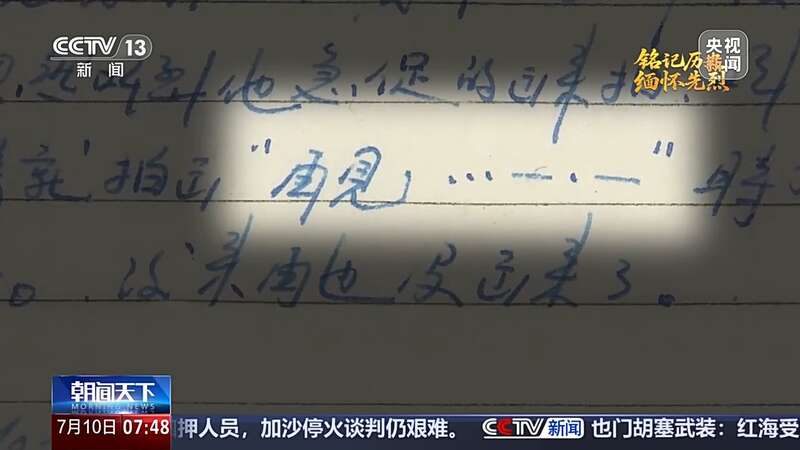 CCTV 13
新闻
央视
新闻
铭记历史
缅怀先烈
他急促的回来拍
就拍过“再见，…—·—”
。没来再也没回来了。
朝闻天下
MORNING NEWS
7月10日 07:48
押人员，加沙停火谈判仍艰难。 CCTV 新闻 也门胡塞武装：红海受